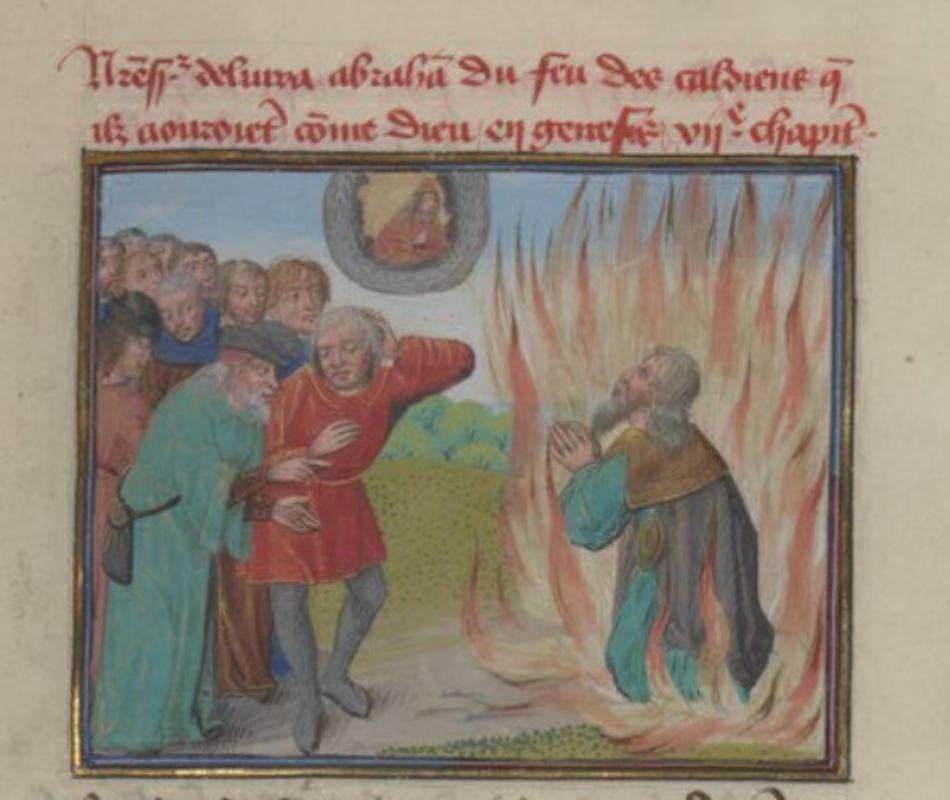 Nr̃e ss.ʳ deliura abrahã du feu des caldiens q̃
ilz aouroiet̃ cõme dieu en genesse vijᵉ chapit̃.